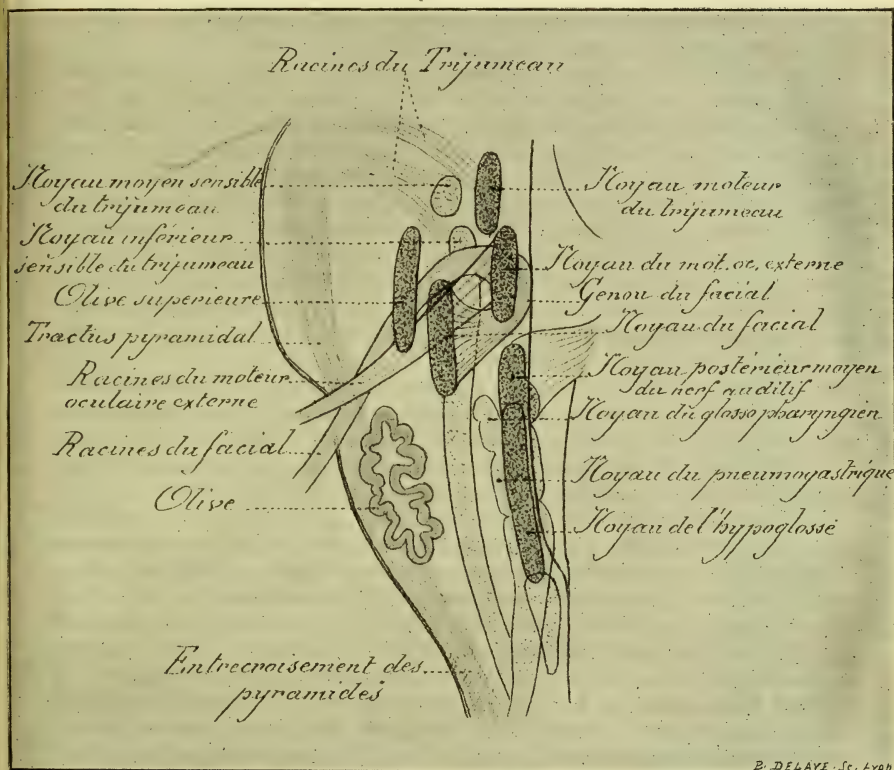 Racines du Trijumeau
Noyau moyen sensible
du trijumeau
Noyau inférieur
sensible du trijumeau
Olive supérieure
Tractus pyramidal
Racines du moteur
oculaire externe
Racines du facial
Olive
Entrecroisement des
pyramides
Noyau moteur
du trijumeau
Noyau du mot. oc. externe
Genou du facial
Noyau du facial
Noyau postérieur moyen
du nerf auditif
Noyau du glosso pharyngien
Noyau du pneumogastrique
Noyau de l'hypoglosse
B. DELAYE. Sc. Lyon